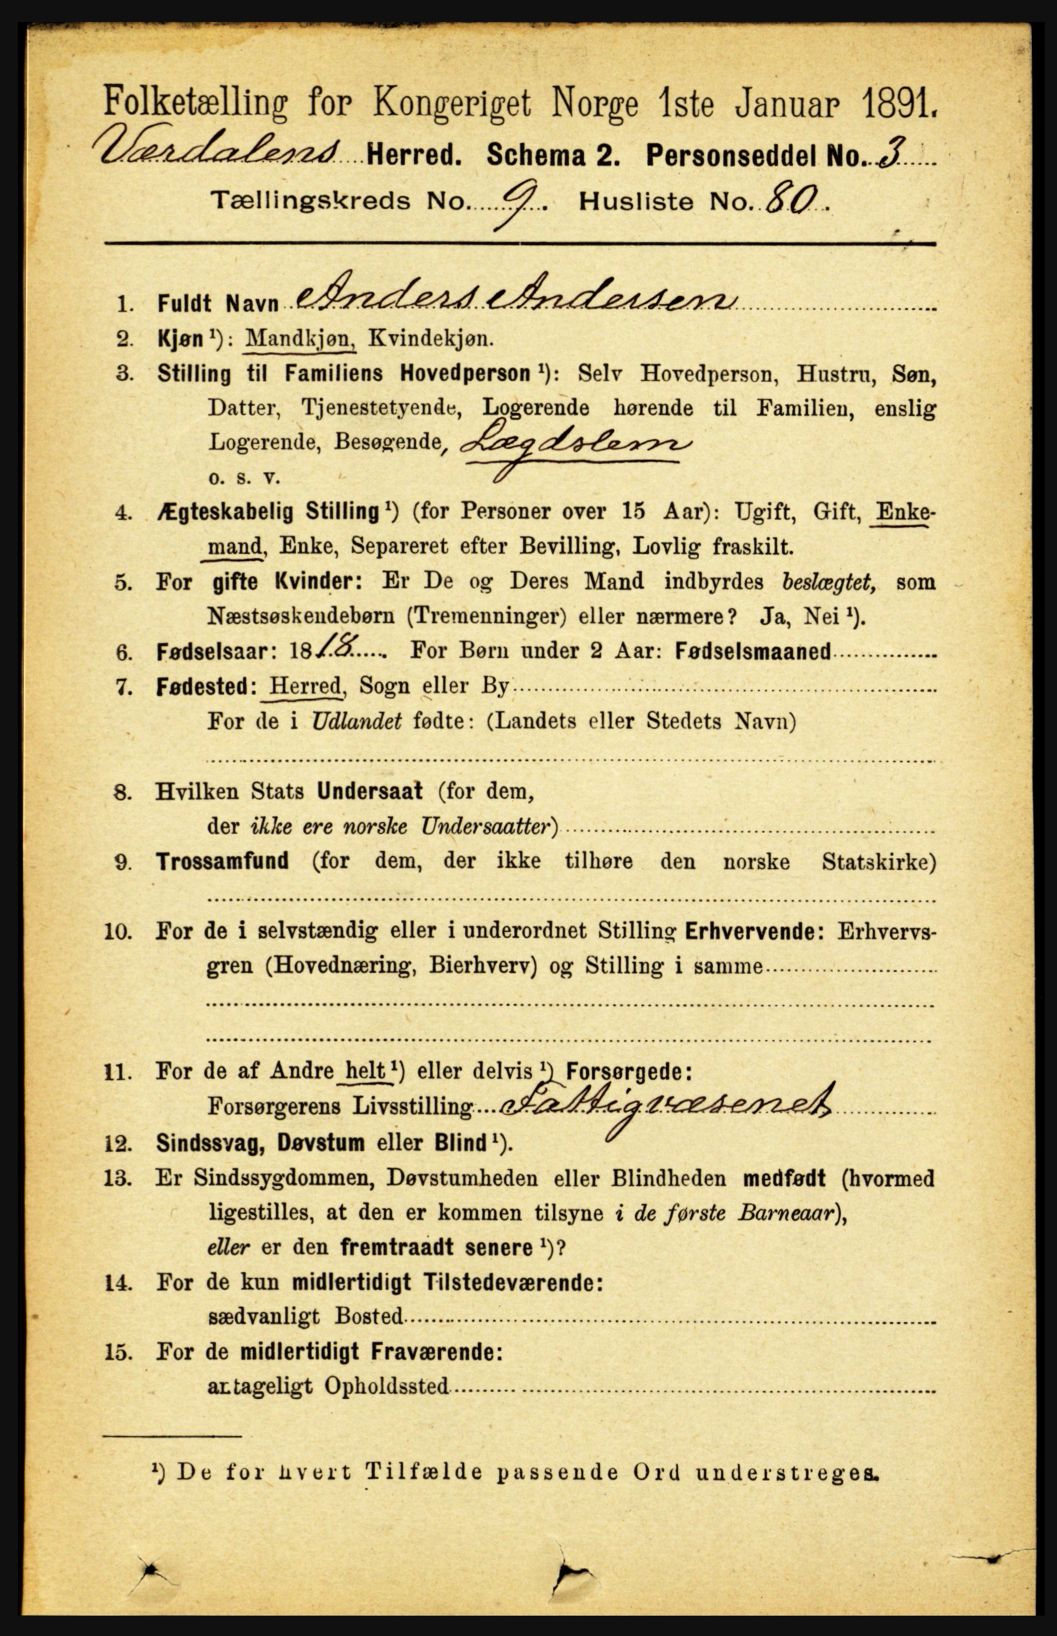 Folketælling for Kongeriget Norge 1ste Januar 1891.
Værdalens Herred. Schema 2. Personseddel No. 3
Tællingskreds No. 9. Husliste No. 80.
1. Fuldt Navn Anders Andersen
2. Kjøn ¹): Mandkjøn, Kvindekjøn.
3. Stilling til Familiens Hovedperson ¹): Selv Hovedperson, Hustru, Søn,
Datter, Tjenestetyende, Logerende hørende til Familien, enslig
Logerende, Besøgende, Lægdslem
o. s. v.
4. Ægteskabelig Stilling ¹) (for Personer over 15 Aar): Ugift, Gift, Enke-
mand, Enke, Separeret efter Bevilling, Lovlig fraskilt.
5. For gifte Kvinder: Er De og Deres Mand indbyrdes beslægtet, som
Næstsøskendebørn (Tremenninger) eller nærmere? Ja, Nei ¹).
6. Fødselsaar: 1818. For Børn under 2 Aar: Fødselsmaaned
7. Fødested: Herred, Sogn eller By
For de i Udlandet fødte: (Landets eller Stedets Navn)
8. Hvilken Stats Undersaat (for dem,
der ikke ere norske Undersaatter)
9. Trossamfund (for dem, der ikke tilhøre den norske Statskirke)
10. For de i selvstændig eller i underordnet Stilling Erhvervende: Erhvervs-
gren (Hovednæring, Bierhverv) og Stilling i samme
11. For de af Andre helt ¹) eller delvis ¹) Forsørgede:
Forsørgerens Livsstilling Fattigvæsenet
12. Sindssvag, Døvstum eller Blind ¹).
13. Er Sindssygdommen, Døvstumheden eller Blindheden medfødt (hvormed
ligestilles, at den er kommen tilsyne i de første Barneaar),
eller er den fremtraadt senere ¹)?
14. For de kun midlertidigt Tilstedeværende:
sædvanligt Bosted
15. For de midlertidigt Fraværende:
antageligt Opholdssted
¹) De for hvert Tilfælde passende Ord understreges.